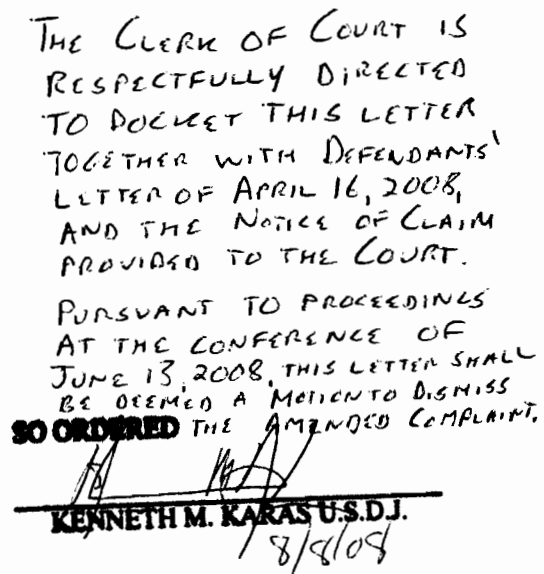 THE CLERK OF COURT IS
RESPECTFULLY DIRECTED
TO DOCKET THIS LETTER
TOGETHER WITH DEFENDANTS'
LETTER OF APRIL 16, 2008,
AND THE NOTICE OF CLAIM
PROVIDED TO THE COURT.
PURSUANT TO PROCEEDINGS
AT THE CONFERENCE OF
JUNE 13, 2008, THIS LETTER SHALL
BE DEEMED A MOTION TO DISMISS
SO ORDERED THE AMENDED COMPLAINT.
KENNETH M. KARAS U.S.D.J.
8/8/08